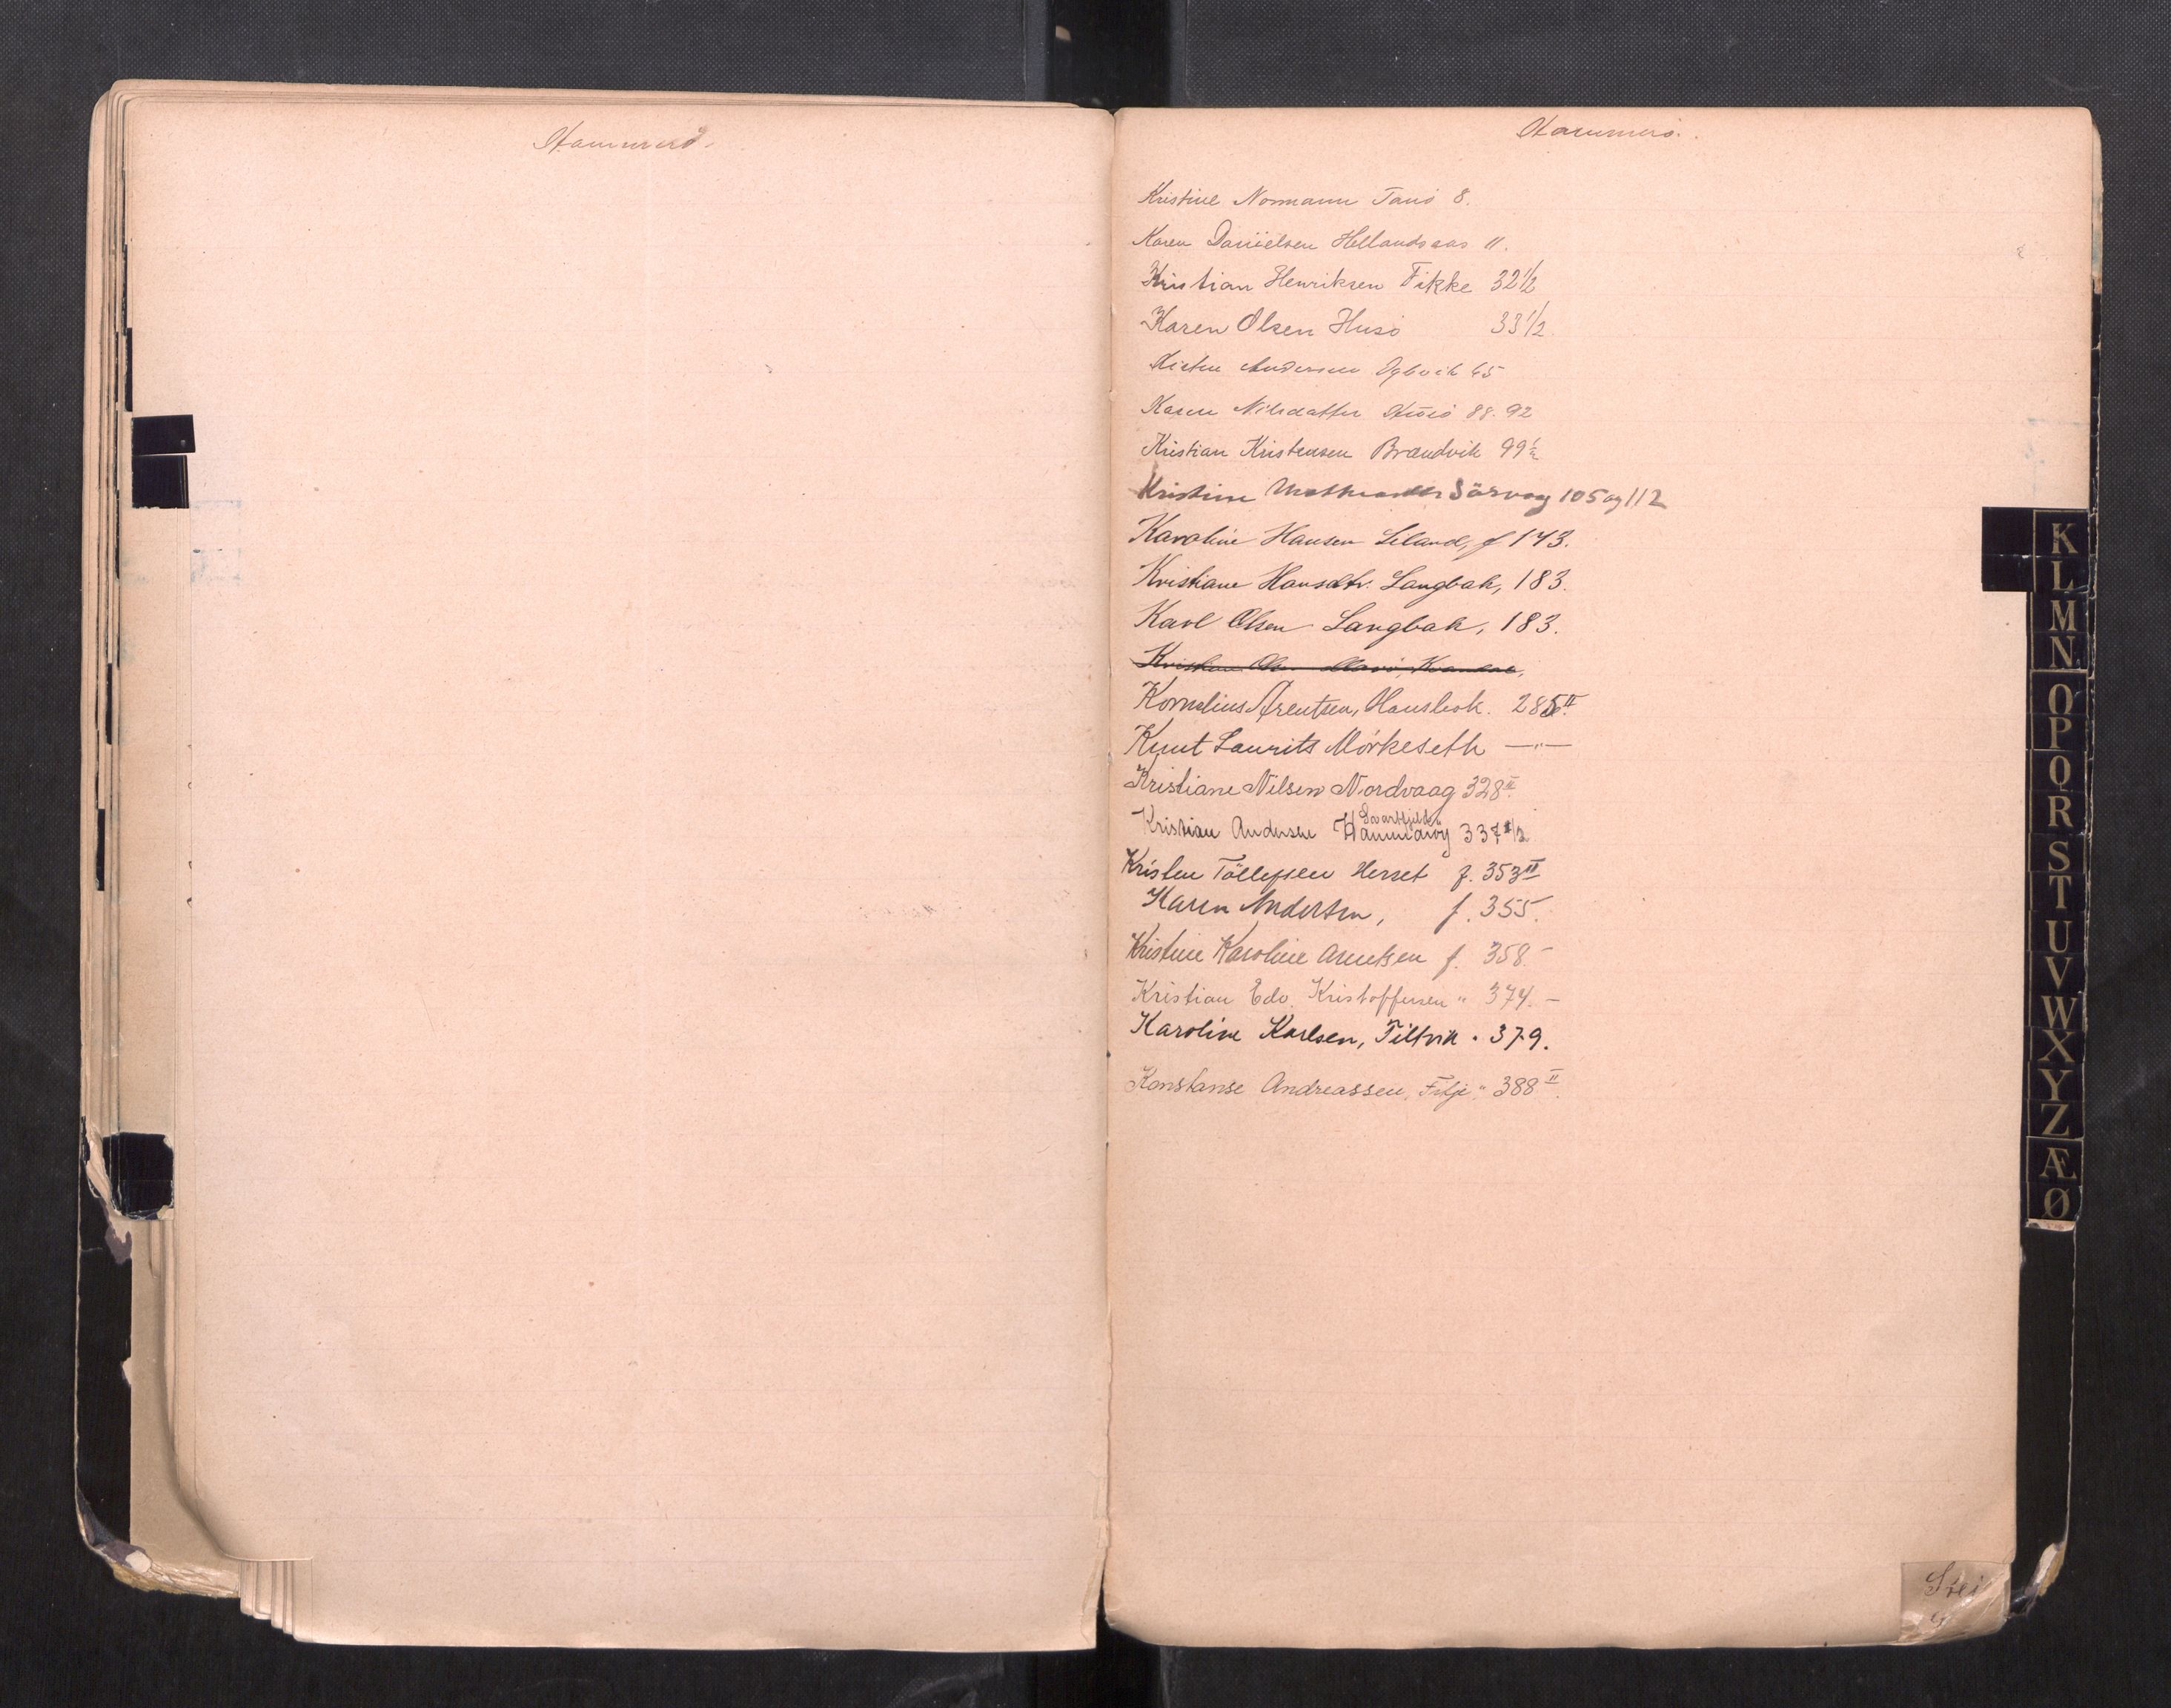 Hammerö.
Hammerö.
Kristine Normann Tanö 8.
Karen Daniielsen Hellandsaas 11.
Kristian Henriksen Fikke 32 1/2
Karen Olsen Husö 33 1/2.
Andersen 65
Karen Nilsdatter 88. 92
Kristian Kristensen Brændvik 99 1/2
Kristine Sörvaag 105 og 112
Karoline Hansen Leland, f 143.
Kristiane Hansdtr. Langbak, 183.
Karl Olsen Langbak, 183.
Kornelius Arentsen, Hansbok. 285 II.
Knut Laurits Mörkeseth —"—
Kristiane Nilsen Nordvaag 328 II.
Kristian Andersen Hammeröy 337 1/2
Kristen Töllefsen Herset f. 353 II
Karen Andersen, f. 355.
Kristine Karoline Arentsen f. 358.-
Kristian Edv. Kristoffersen " 374. -
Karoline Karlsen, Tiltvik . 379.
Konstanse Andreassen, Filje " 388 II.
K
L
M
N
O
P
Q
R
S
T
U
V
W
X
Y
Z
Æ
Ø